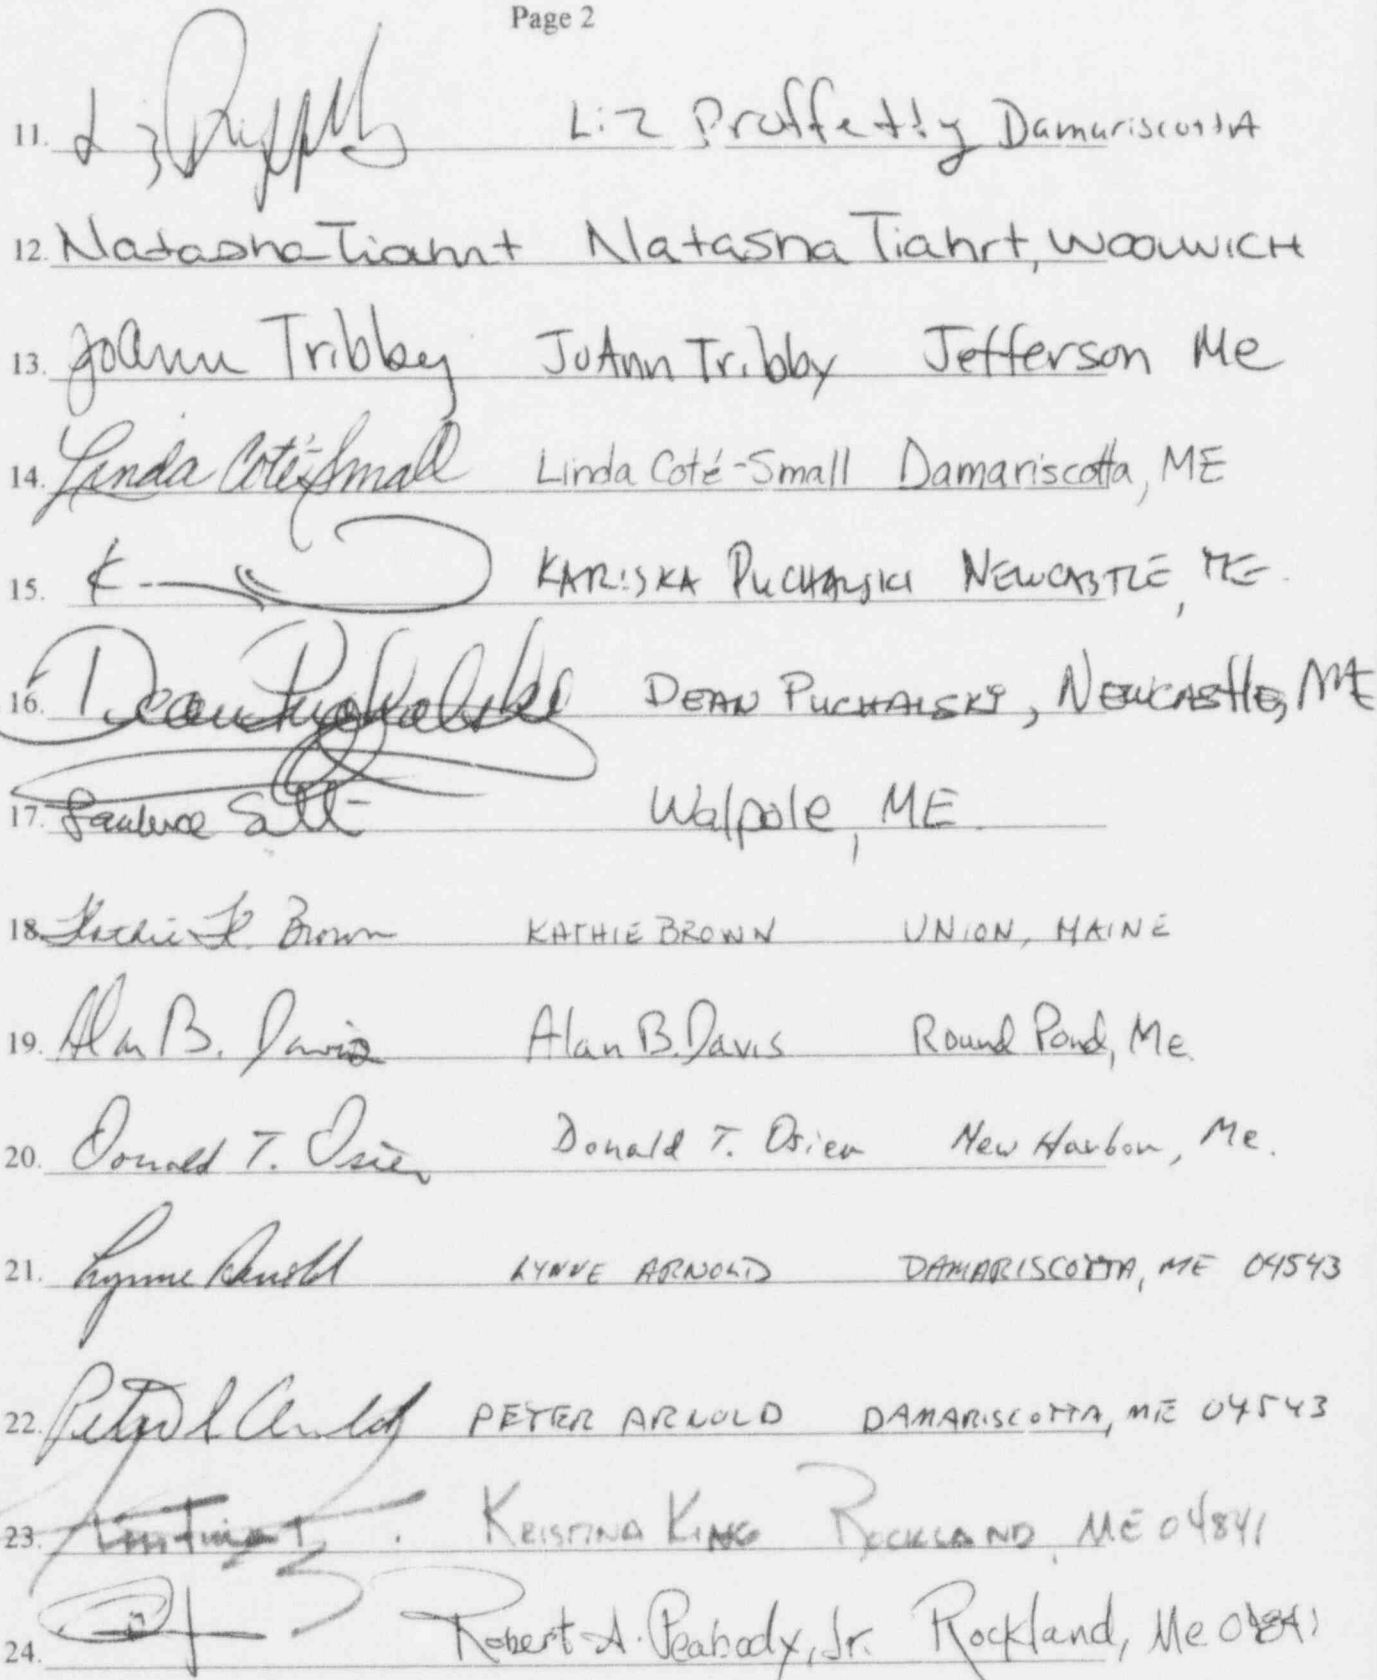 Page 2
11. Liz Proffetty Damariscotta
12. Natasha Tiahrt Natasha Tiahrt, WOOLWICH
13. JoAnn Tribby JoAnn Tribby Jefferson Me
14. Linda Coté-Small Linda Coté-Small Damariscotta, ME
15. K KARISKA PUCHALSKI NEWCASTLE, ME.
16. Dean Puchalski DEAN PUCHALSKI, NEWCASTLE, ME
17. Walpole, ME.
18. Kathie Brown KATHIE BROWN UNION, MAINE
19. Alan B. Davis Alan B. Davis Round Pond, Me.
20. Donald T. Osien Donald T. Osien New Harbor, Me.
21. Lynne Arnold LYNNE ARNOLD DAMARISCOTTA, ME 04543
22. Arnold PETER ARNOLD DAMARISCOTTA, ME 04543
23. KRISTINA KING ROCKLAND, ME 04841
24. Robert A. Peabody, Jr. Rockland, Me 04841